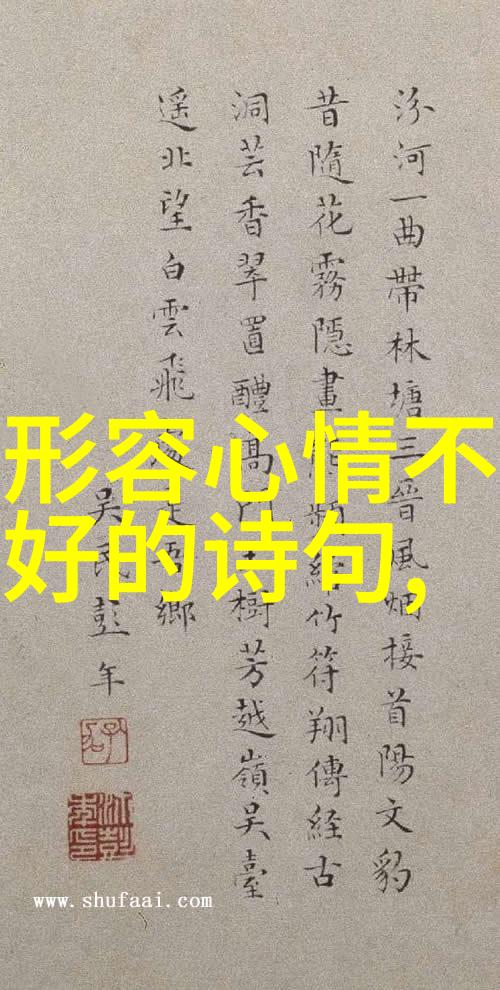 形容心情不
好的诗句,
汾河一曲帶林塘三晉風烟接首陽文豹
昔隨花霧隱畫竹符翔傳經古
洞芸香翠置醴高門樹芳越嶺吳臺
遥北望白雲飛處是吾鄉
吳民彭年
www.shufaai.com